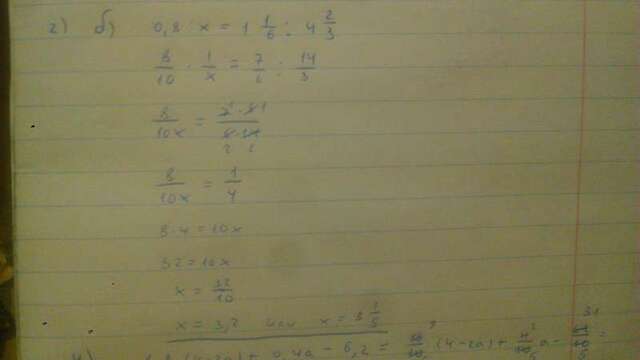 2) б) 0,8 : x = 1 1/6 : 4 2/3
8/10 · 1/x = 7/6 : 14/3
8/10x = 7 · 3 / 6 · 14
8/10x = 1/4
8·4 = 10x
32 = 10x
x = 32/10
x = 3,2 или x = 3 1/5
(4-2a) + 0,4a - 6,2 =